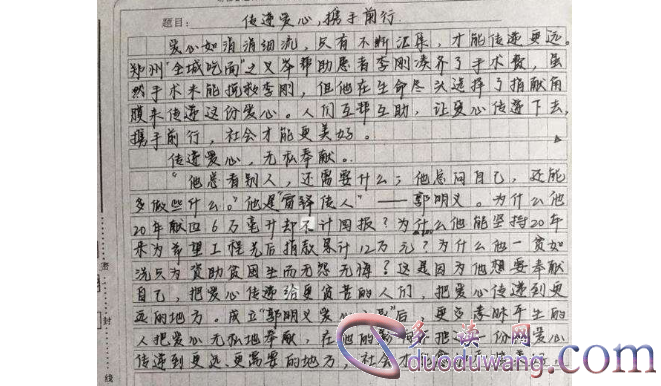 题目: 传递爱心,携手前行.
爱心如涓涓细流,只有不断汇集,才能传递更远。
郑州“全城吃面”之义举帮助患者李刚凑齐了手术费,虽
然手术未能挽救李刚,但他在生命尽头选择了捐献角
膜来传递这份爱心。人们互帮互助,让爱心传递下去,
携手前行,社会才能更美好。
传递爱心,无私奉献。
“他总看别人,还需要什么;他总问自己,还能
多做些什么。”他是“雷锋传人”——郭明义。为什么他
20年献血6万毫升却不计回报?为什么他能坚持20年
来为希望工程先后捐款累计12万元?为什么他一贫如
洗只为资助贫困生而无怨无悔?这是因为他想要奉献
自己,把爱心传递给更贫苦的人们,把爱心传递到更
远的地方。成立“郭明义爱心 后,更 素昧平生的
人把爱心无私地奉献,在他的影 把 份 爱心
传递到更远更需要的地方,社会才
密
封
线
多读网
duoduwang.com